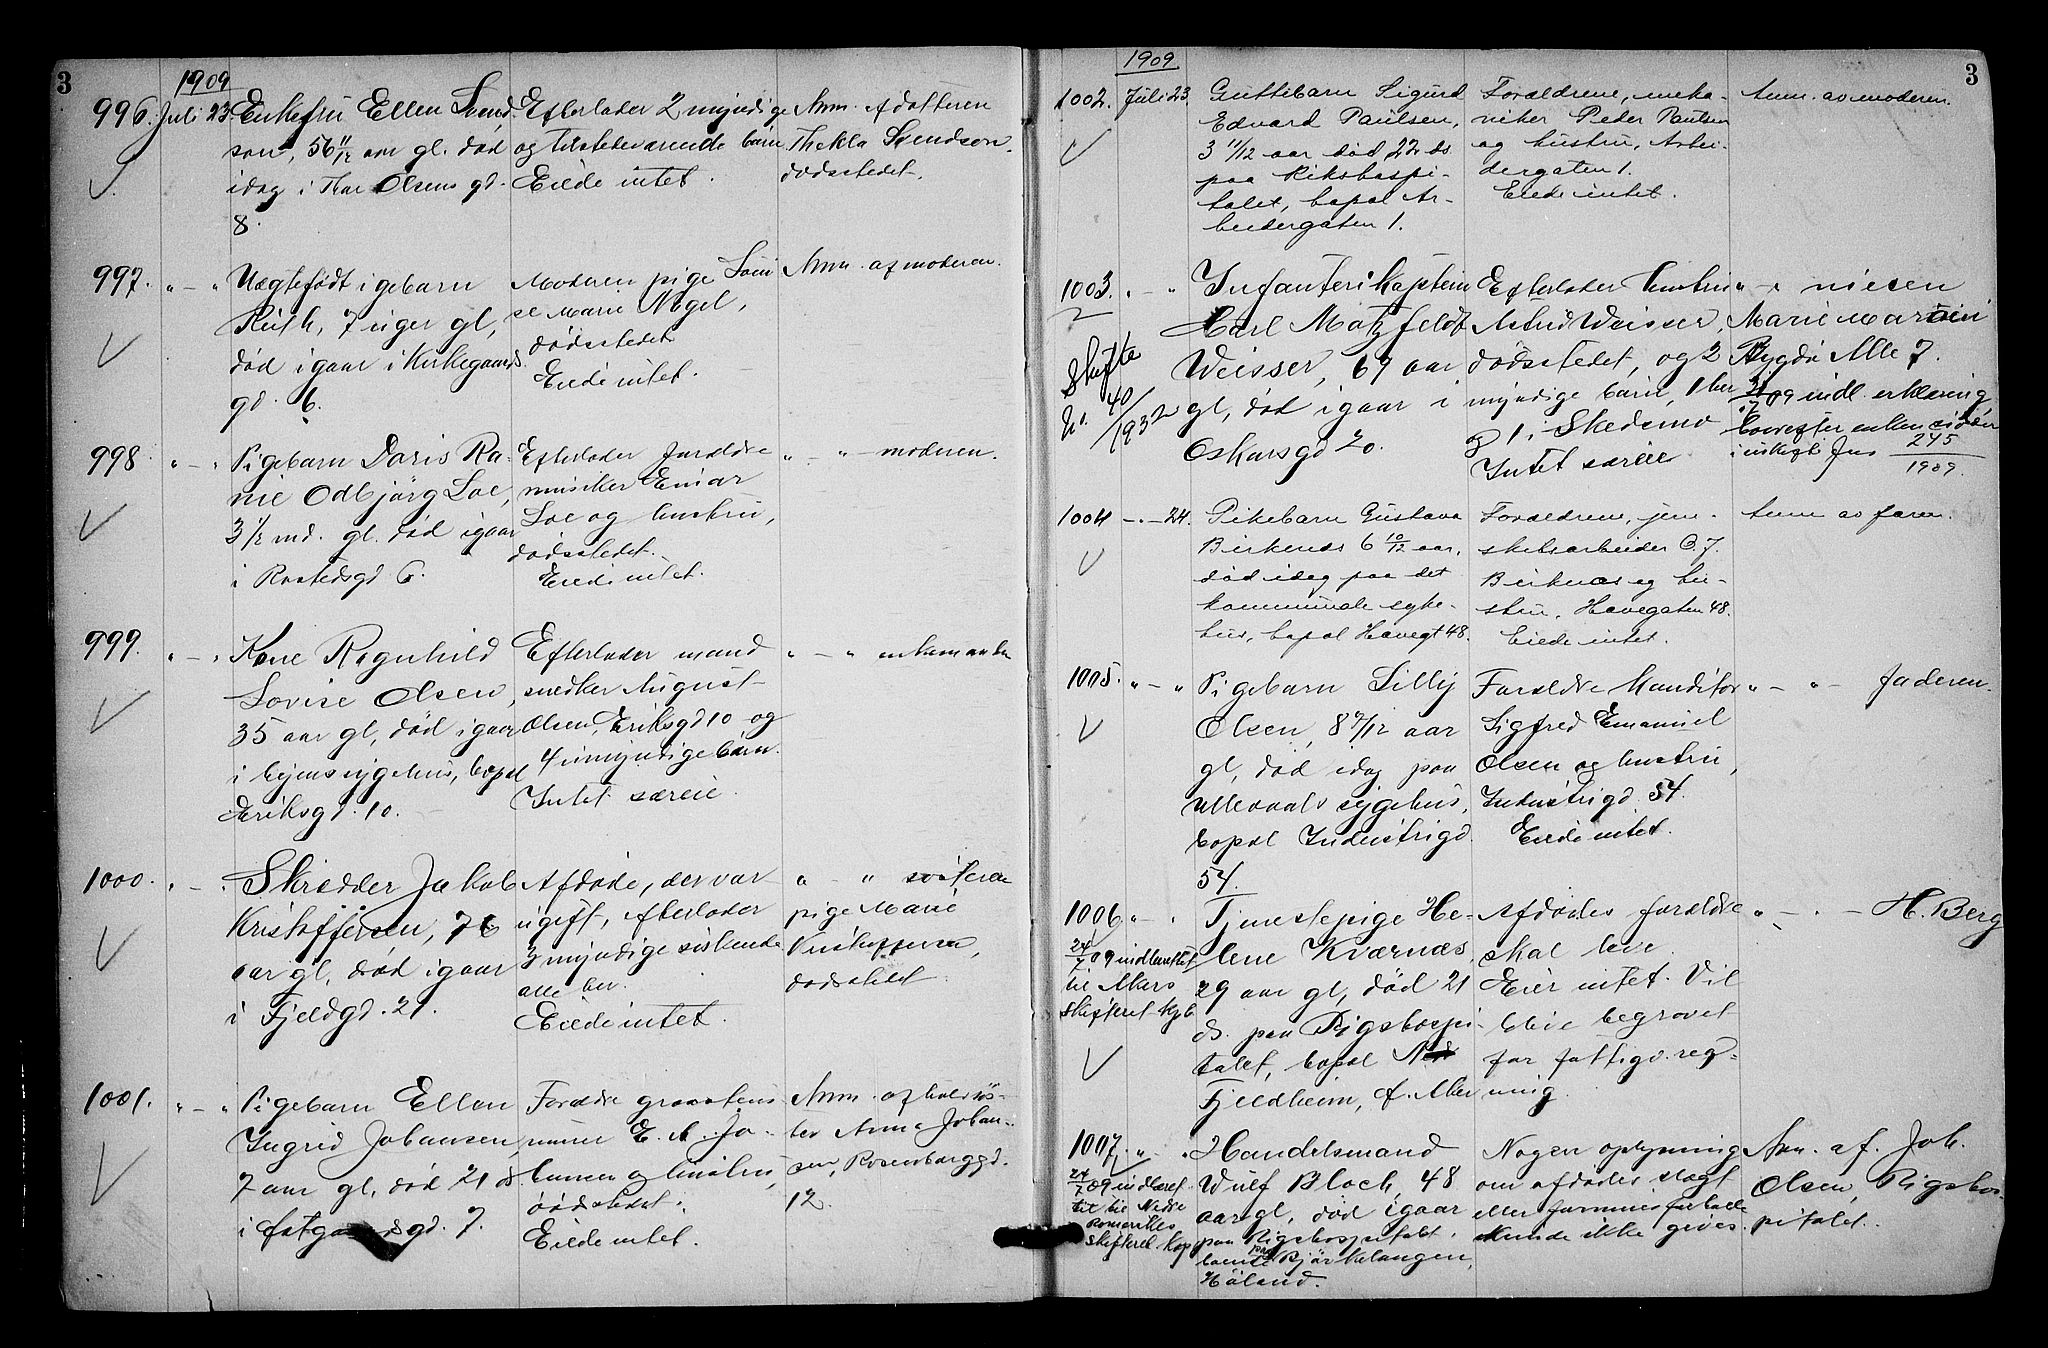 3
1909
996. Juli 23. Enkefru Ellen Svend-
sen, 56 11/12 aar gl. død
idag i Thor Olsens gd.
8.
Efterlader 2 myndige
og tilstedeværende børn
Eiede intet.
Anm. af datteren
Thekla Svendsen.
dødsstedet.
997. " - " Uægtefødt igebarn
Ruth, 7 uger gl,
død igaar i Kirkegaards
gd. 6.
Moderen pige Loui
se Marie Nøgel,
dødsstedet
Eiede intet.
Anm. af moderen.
998 " - " Pigebarn Doris Ra-
nie Odbjørg Loe,
3 1/2 md. gl. død igaar
i Rostedsgd 6.
Efterlader forældre
musiker Einar
Loe og hustru,
dødsstedet.
Eiede intet.
" - " moderen.
999. " - " Kone Ragnhild
Lovise Olsen,
35 aar gl, død igaar
i byens sygehus, bopæl
Eriksgd. 10.
Efterlader mand
snedker August
Olsen, Eriksgd 10 og
4 umyndige børn.
Intet særeie.
" - " enkemanden
1000. " - " Skrædder Jakob
Kristoffersen, 76
aar gl, død igaar
i Fjeldgd. 21.
Afdøde, der var
ugift, efterlader
3 myndige søskende
alle her.
Eiede intet.
" - " søsteren
pige Marie
Kristoffersen,
dødsstedet
1001. " - " Pigebarn Ellen
Ingrid Johansen,
7 aar gl. død 21 ds
i gd. 7.
Forældre
murer E. A. Jo-
hansen og hustru,
dødsstedet.
Eiede intet.
Anm. af halvsøs-
ter Anna Johan-
sen, Rosenborggd.
12.
3
1909
1002. Juli 23. Guttebarn Sigurd
Edvard Paulsen,
3 11/12 aar død 22 ds
paa Rikshospi-
talet, bopæl Ar-
beidergaten 1.
Forældrene, meka-
niker Peder Paulsen
og hustru, Arbei-
dergaten 1.
Eiede intet.
Anm. av moderen.
1003. " - " Infanterikaptein
Karl Matzfeldt
Weisser, 67 aar
gl, død igaar i
Oskarsgd 20.
Skifte
No. 40/1932
Efterlader hustru
Astrid Weisser,
dødsstedet, og 2
myndige børn, 1 her
og 1 i Skedsmo
Intet særeie
" - " niesen
Marie Martini
Bygdø Alle 7.
31/7 09 indl. erklæring
enken sidder
i uskiftet Jns 245/1909.
1004 - " - 24. Pikebarn Gustava
Birkenæs 6 10/12 aar,
død idag paa det
kommunale syke-
hus, bopæl Havegt 48.
Forældrene, jern-
arbeider C. J.
Birknæs og hu-
stru, Havegaten 48.
Eiede intet.
Anm av faren.
1005. " - " Pigebarn Lilly
Olsen, 8 9/12 aar
gl, død idag paa
Ullevaals sygehus,
bopæl Industrigd.
54.
Forældre Konditor
Sigfred Emanuel
Olsen og hustru,
Industrigd. 54.
Eiede intet.
" - " - faderen.
1006 " - " Tjenestepige He-
lene Kværnæs,
29 aar gl, død 21
ds. paa Rigshospi-
talet, bopæl
Fjeldheim, Ø. Aker
24/7 09 indberettet
til Akers
Skifteret
Afdødes forældre
skal leve
Eier intet. Vil
blive begravet
for fattigv. reg-
ning.
" - " - H. Berg
1007. " - " Handelsmand
Wulf Bloch, 48
aar gl, død igaar
paa Rigshospitalet,
boende paa Bjørkelangen,
Høland.
24/7 09 indberet-
tet til Nedre
Romerikes
Skifteret
Nogen oplysning
om afdødes slægt
eller formuesforhold
kunde ikke gives.
Anm. af. Joh.
Olsen, Rigshos-
pitalet.